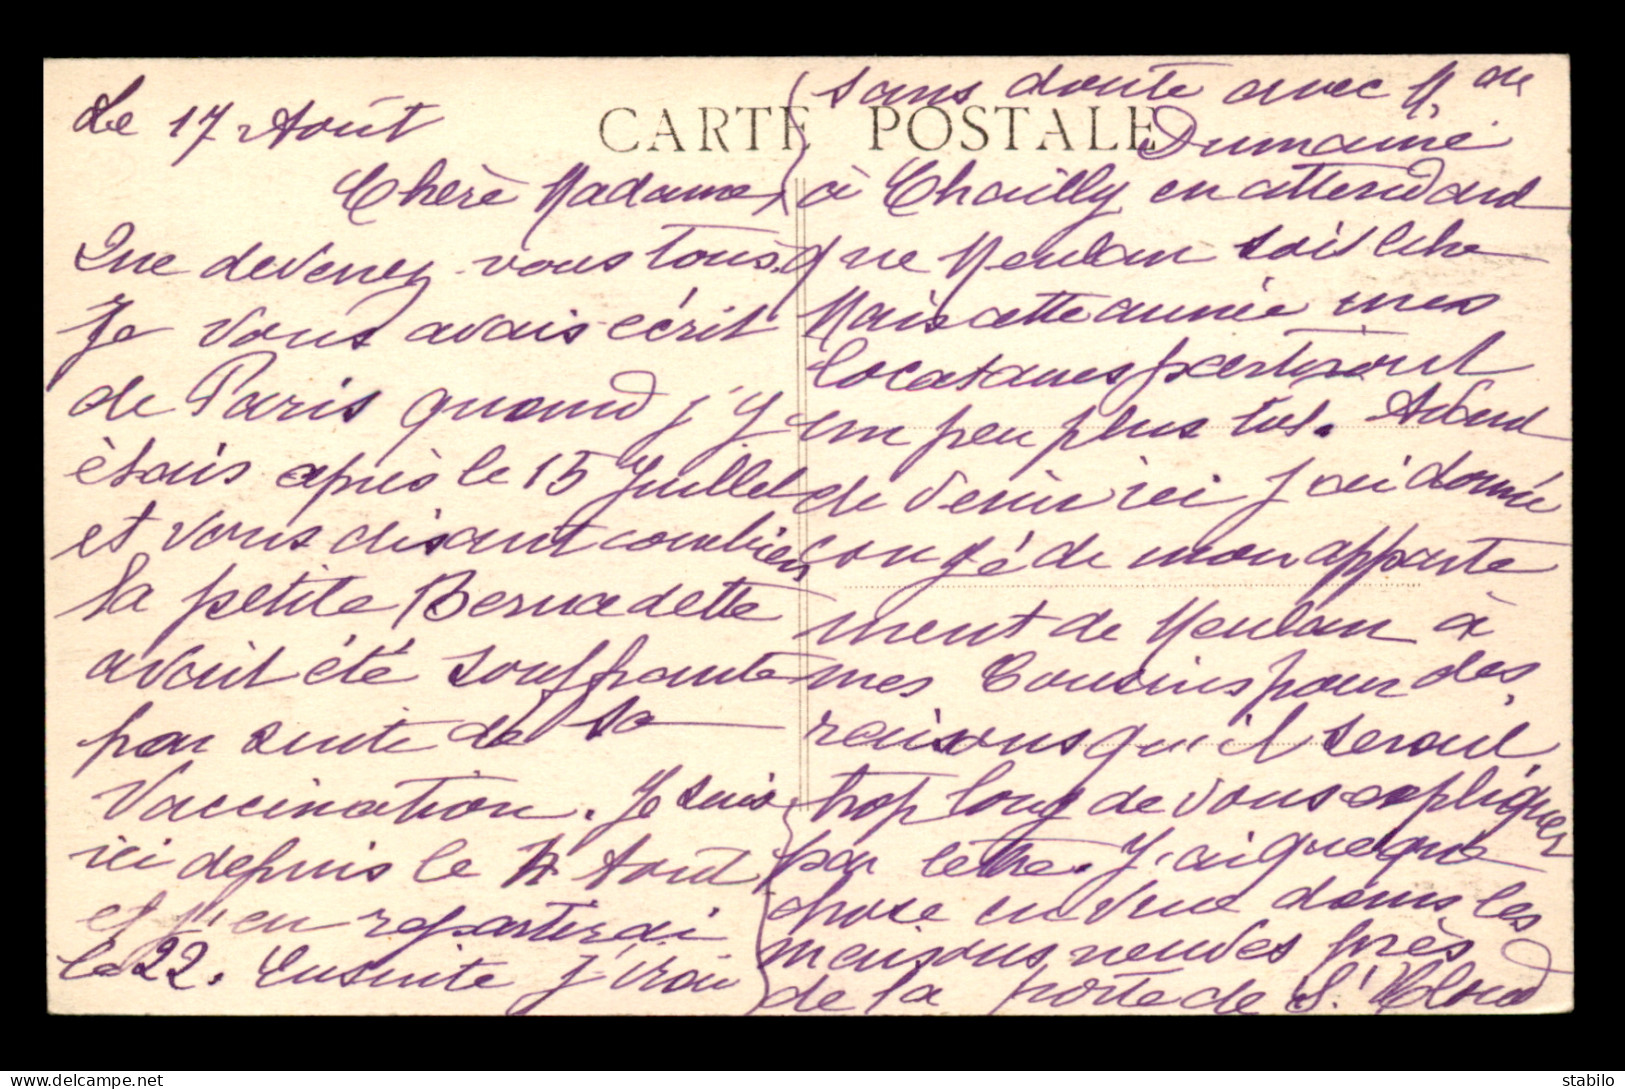 Le 17 Août
CARTE POSTALE
Chère Madame,
Que devenez vous tous.
Je vous avais écrit
de Paris quand j'y
étais après le 15 Juillet
et vous disant combien
la petite Bernadette
avait été souffrante
par suite de sa
Vaccination. Je suis
ici depuis le 4 Août
et j'en repartirai
le 22. Ensuite j'irai
sans doute avec Mme
Dumaine
à Chailly en attendant
que Meulan soit libre
Mais cette année mes
locataires partiront
un peu plus tôt. Avant
de venir ici j'ai donné
congé de mon apparte
ment de Meulan à
mes Cousins pour des
raisons qu'il serait
trop long de vous expliquer
par lettre. J'ai quelque
chose en vue dans les
maisons neuves près
de la porte de St Cloud
stabilo